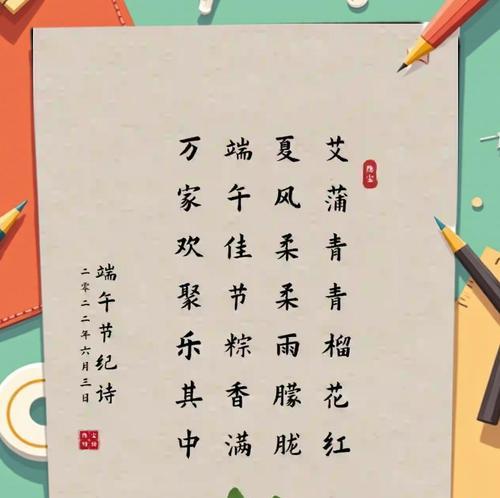 艾蒲青青榴花红
夏风柔柔雨朦胧
端午佳节粽香满
万家欢聚乐其中
端午节纪诗
二零二二年六月三日